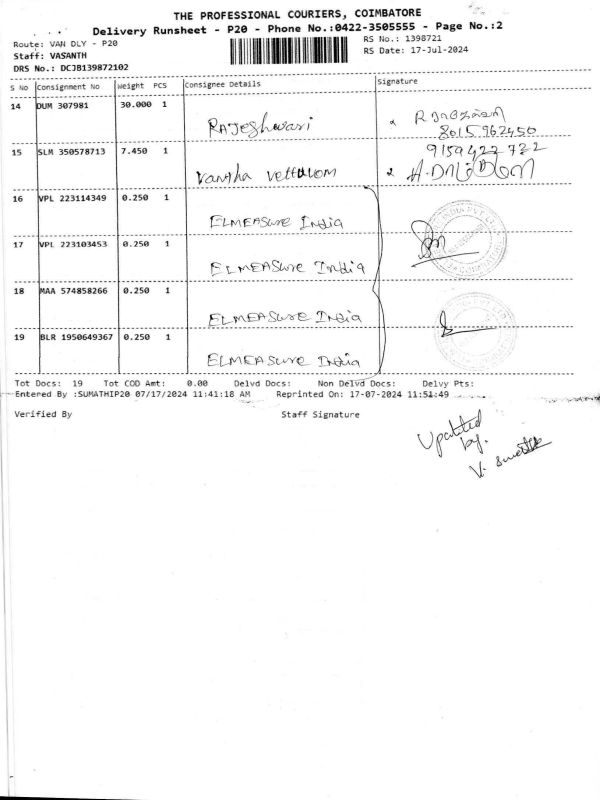 THE PROFESSIONAL COURIERS, COIMBATORE
Delivery Runsheet - P20 - Phone No.:0422-3505555 - Page No.:2
Route: VAN DLY - P20
RS No.: 1398721
Staff: VASANTH
RS Date: 17-Jul-2024
DRS No.: DCJB139872102
S No Consignment No Weight PCS Consignee Details Signature
14 DUM 307981 30.000 1
RAJeshwari
8015962450
15 SLM 350578713 7.450 1
9159422722
Vantha Vettalom
16 VPL 223114349 0.250 1
ELMEASure India
17 VPL 223103453 0.250 1
ELMEASure India
18 MAA 574858266 0.250 1
ELMEASure India
19 BLR 1950649367 0.250 1
ELMEASure India
Tot Docs: 19 Tot COD Amt: 0.00 Delvd Docs: Non Delvd Docs: Delvy Pts:
Entered By :SUMATHIP20 07/17/2024 11:41:18 AM Reprinted On: 17-07-2024 11:51:49
Verified By Staff Signature
Updated
by.